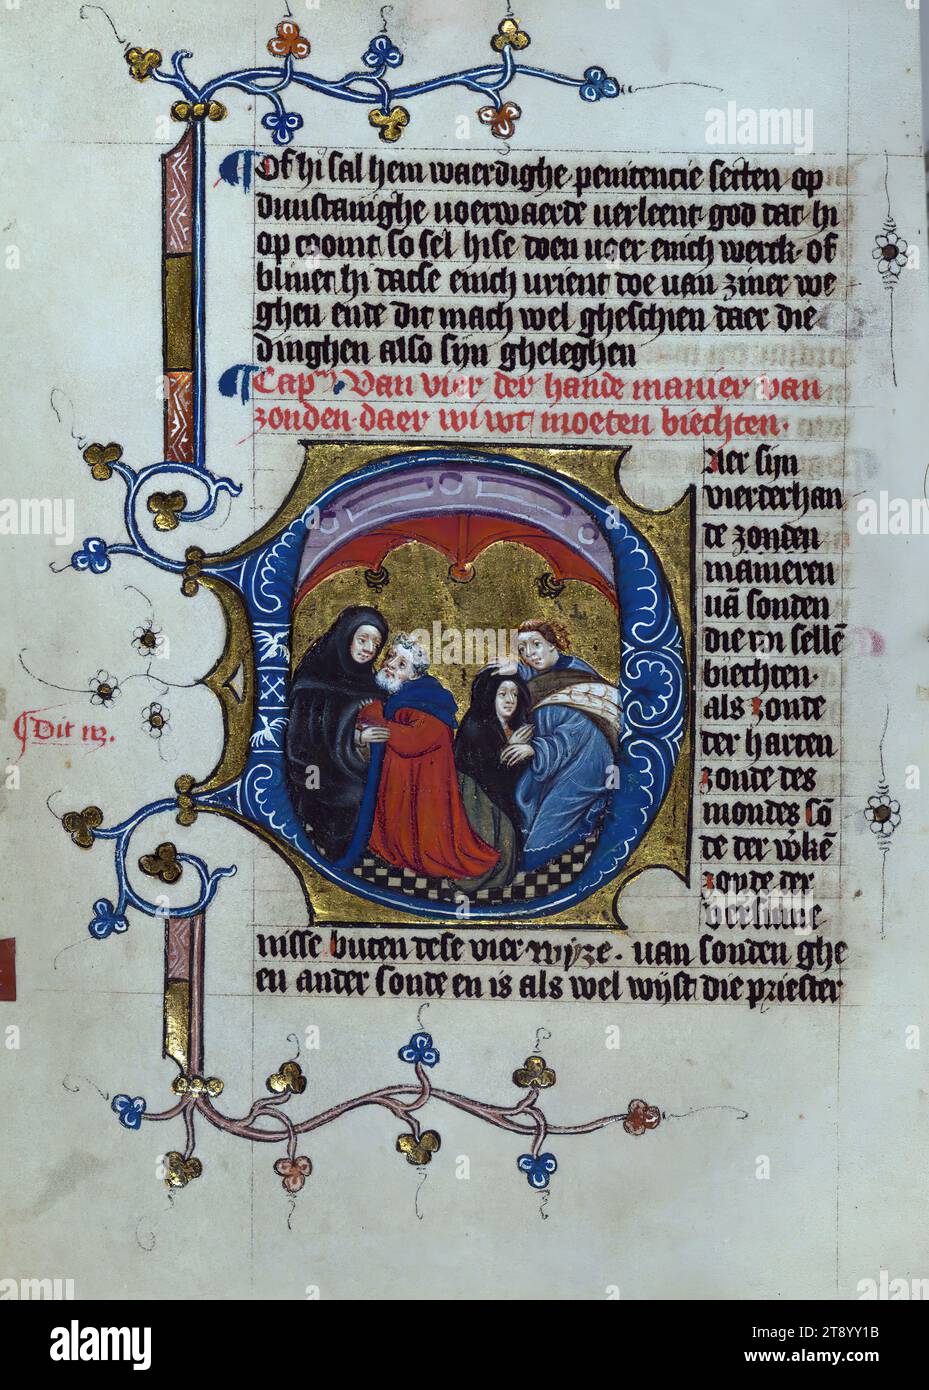 Of hi sal hem waerdighe penitencie setten op
duustanighe voerwaerde verleent god dat hi
op coomt so sel hise doen uver enich werck of
bliuet hi dacse enich vrient doe van ziner we
ghen ende dit mach wel gheschien daer die
dinghen also sijn gheleghen
Capm. Van vier der hande manier van
zonden daer wi wt moeten biechten.
Aer sijn
vierderhan
de zonden
manieren
vā sonden
die wi sellē
biechten.
als zonde
der harten
zonde des
mondes sō
de der w̄kē
zonde der
versume
Dit iiz.
nisse buten dese vier wijze. van sonden ghe
en ander sonde en is als wel wijst die priester
alamy
Image ID: 2T8YY1B
www.alamy.com